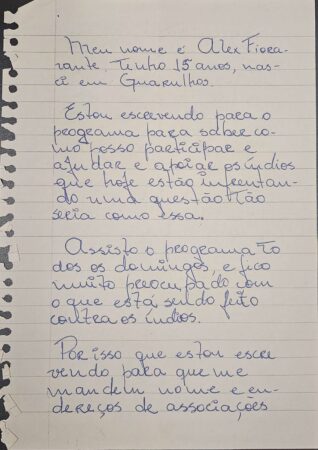 Meu nome é Alex Fiora-
vante. Tenho 15 anos, nas-
ci em Guarulhos.
Estou escrevendo para o
programa para saber co-
mo posso participar e
ajudar e apoiar os índios
que hoje estão infrentan-
do uma questão tão
séria como essa.
Assisto o programa To
dos os domingos, e fico
muito preocupado com
o que está sendo feito
contra os índios.
Por isso que estou escre
vendo para que me
mandem nome e en-
dereços de associações